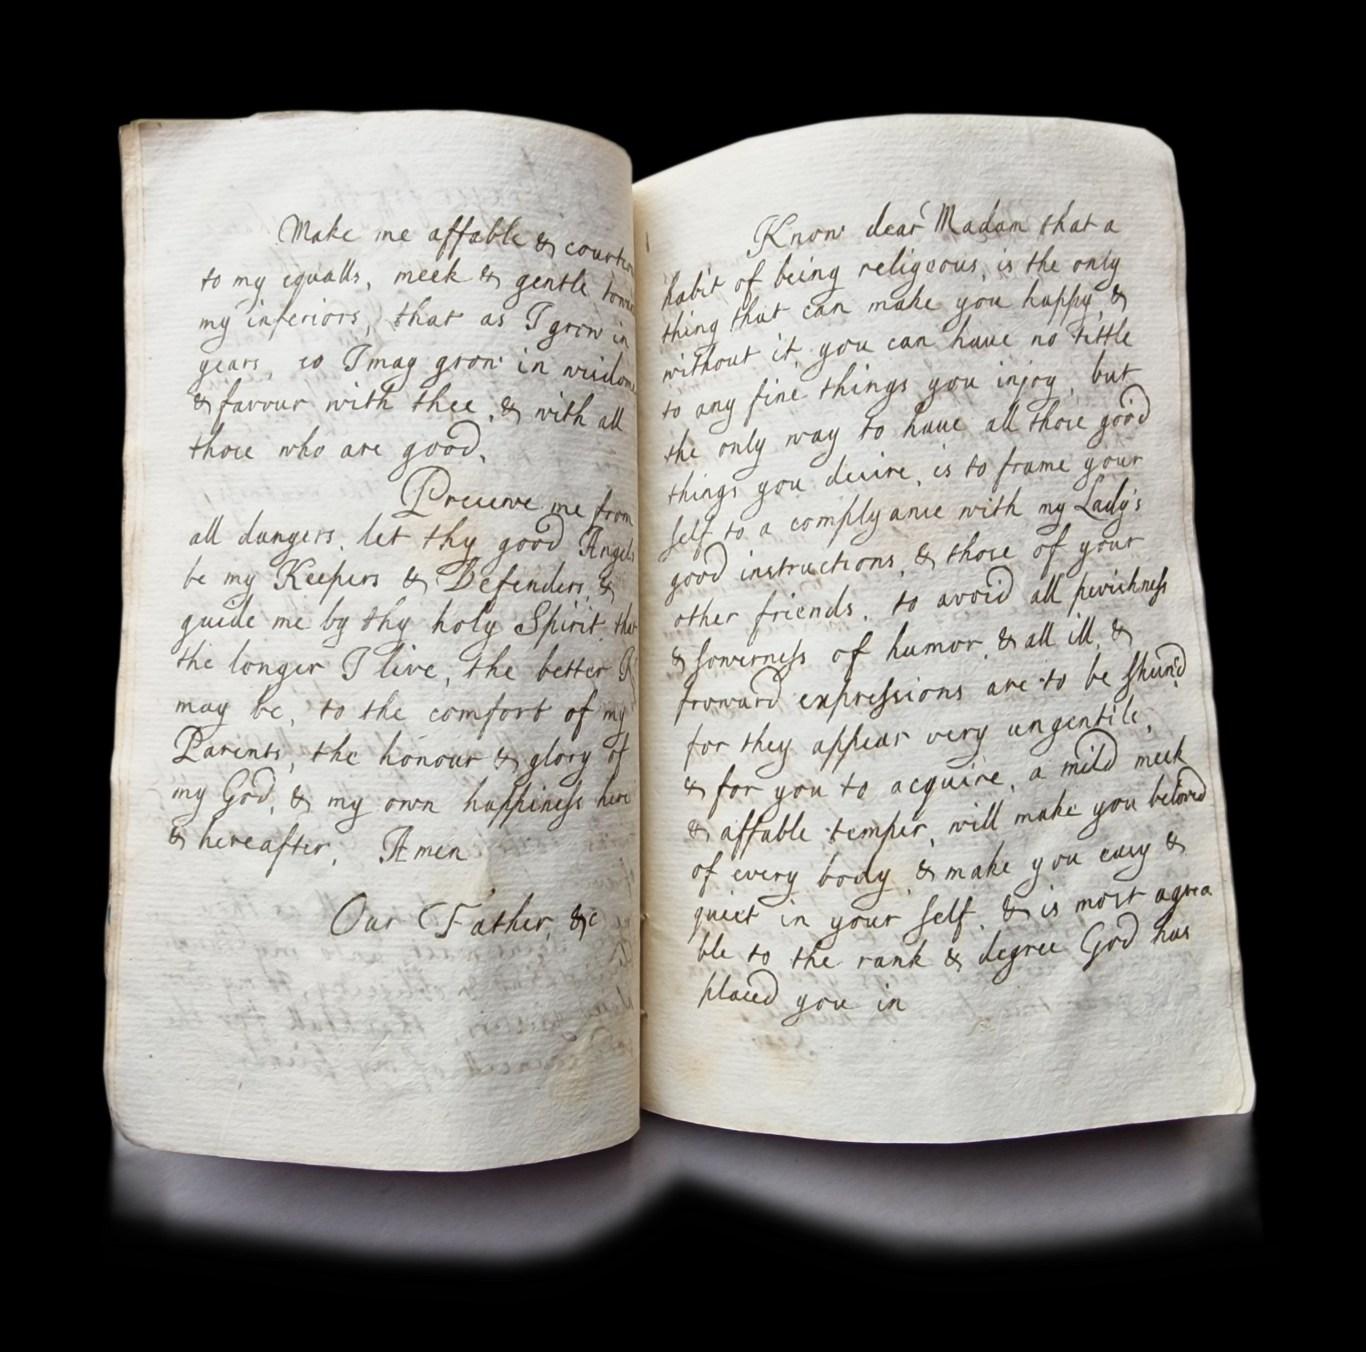 Make me affable & courteo
to my equalls, meek & gentle towar
my inferiors, that as I grow in
years, so I may grow in wisdome
& favour with thee, & with all
those who are good.
Preserve me from
all dangers, let thy good Angels
be my Keepers & Defenders, &
guide me by thy holy Spirit, that
the longer I live, the better I
may be, to the comfort of my
Parents, the honour & glory of
my God, & my own happiness here
& hereafter. Amen
Our Father, &c
Know dear Madam that a
habit of being religeous, is the only
thing that can make you happy, &
without it you can have no tittle
to any fine things you injoy, but
the only way to have all those good
things you desire, is to frame your
self to a complyance with my Lady's
good instructions, & those of your
other friends, to avoid all pevishness
& sowerness of humor, & all ill, &
froward expressions are to be shund
for they appear very ungentile,
& for you to acquire, a mild meek
& affable temper, will make you beloved
of every body, & make you easy &
quiet in your self, & is most agrea
ble to the rank & degree God has
placed you in